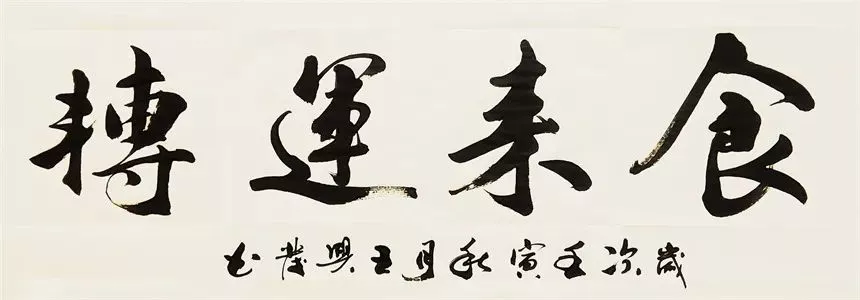 食来運轉
歲次壬寅秋月王興书